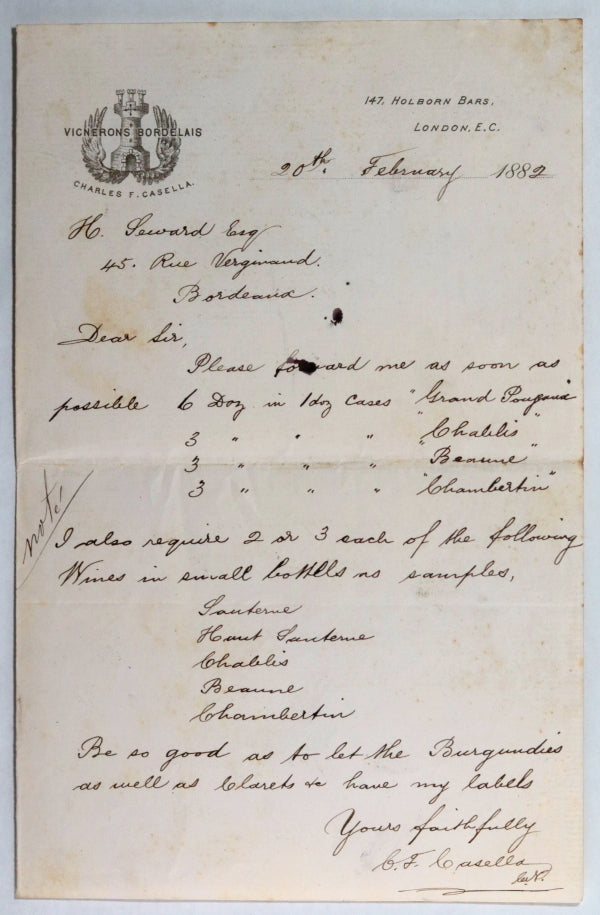 147, HOLBORN BARS,
LONDON, E.C.
VIGNERONS BORDELAIS
CHARLES F. CASELLA.
20th. February 1882
H. Seward Esq
45. Rue
Bordeaux.
Dear Sir,
Please forward me as soon as
possible 6 Doz in 1 doz cases "Grand
3 " " " "Chablis"
3 " " " "Beaune"
3 " " " "Chambertin"
noté
I also require 2 or 3 each of the following
Wines in small bottles as samples,
Sauterne
Haut Sauterne
Chablis
Beaune
Chambertin
Be so good as to let the Burgundies
as well as Clarets &c have my labels
Yours faithfully
C. F. Casella